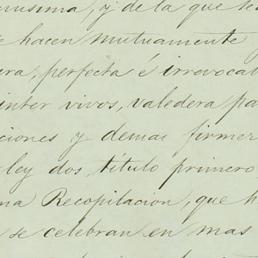 misima, y de la que se
e hacen mutuamente
era, perfecta é irrevocab
inter vivos, valedera pa
ciones y demas firmer
ley dos título primero
ma Recopilacion, que h
se celebran en mas